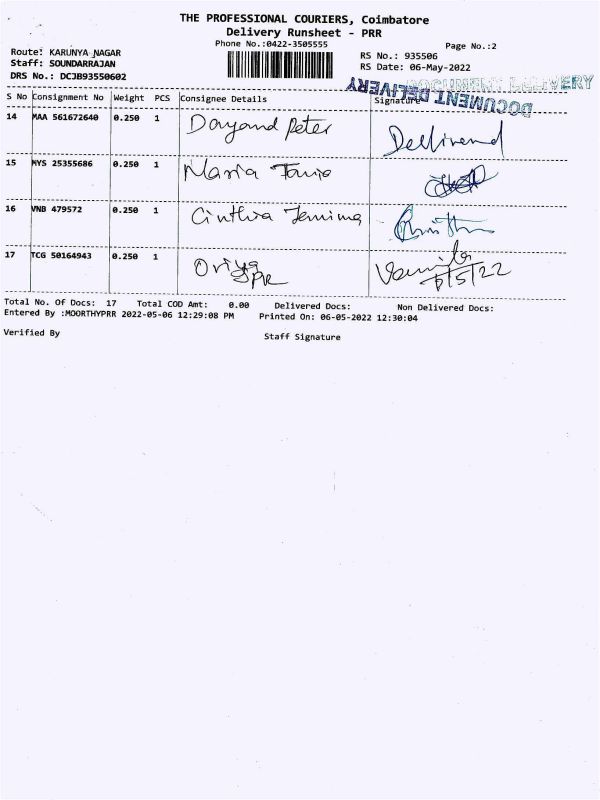 THE PROFESSIONAL COURIERS, Coimbatore
Delivery Runsheet - PRR
Phone No.:0422-3505555
Page No.:2
Route: KARUNYA NAGAR
RS No.: 935506
Staff: SOUNDARRAJAN
RS Date: 06-May-2022
DRS No.: DCJB93550602
DOCUMENT DELIVERY
DOCUMENT DELIVERY
S No Consignment No Weight PCS Consignee Details Signature
14 MAA 561672640 0.250 1 Dayand Peter Dellivered
15 MYS 25355686 0.250 1 Maria
16 VNB 479572 0.250 1 Cinthia Jemima
17 TCG 50164943 0.250 1 Oriya PR 6/5/22
Total No. Of Docs: 17 Total COD Amt: 0.00 Delivered Docs: Non Delivered Docs:
Entered By :MOORTHYPRR 2022-05-06 12:29:08 PM Printed On: 06-05-2022 12:30:04
Verified By
Staff Signature